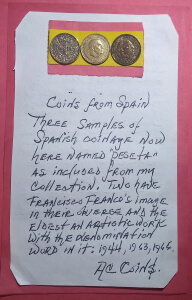 Coins from Spain
Three samples of
Spanish coinage now
here named "Peseta"
as included from my
collection. Two have
Francisco Franco's image
in their obverse and the
eldest an artistic work
with the denomination
word in it. 1944, 1963, 1966
AC Coins.